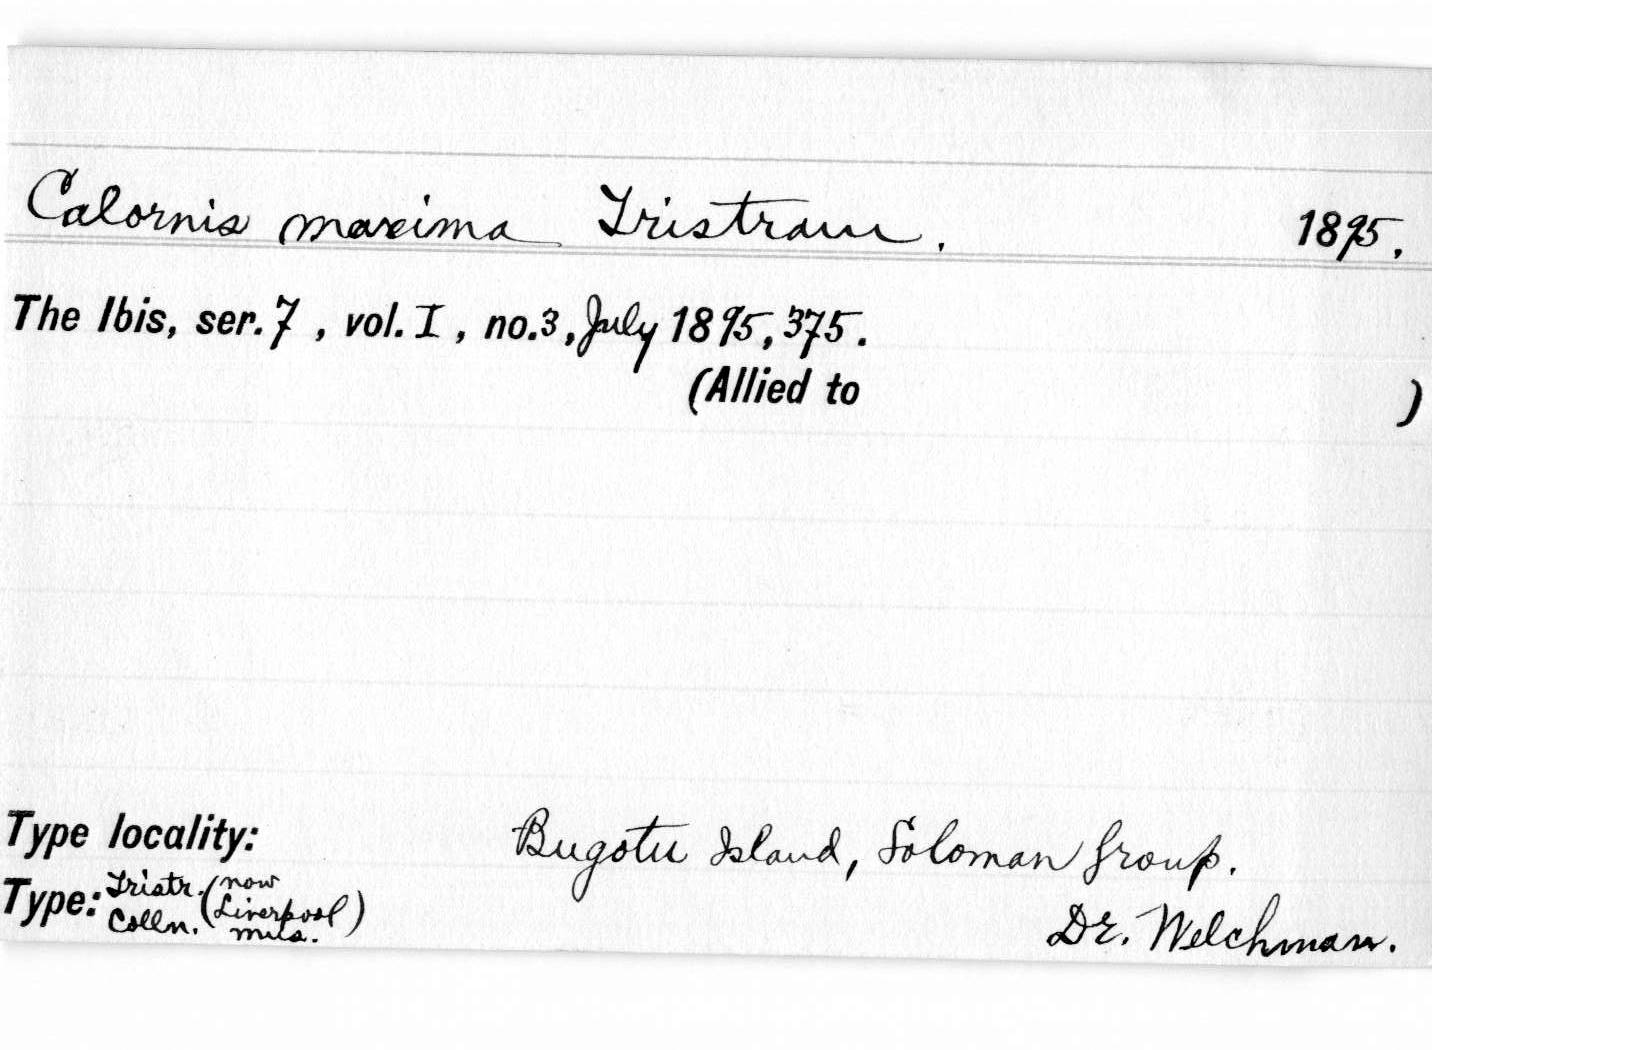 Calornis maxima Tristram. 1895.
The Ibis, ser. 7, vol. I, no. 3, July 1895, 375.
(Allied to )
Type locality: Bugotu Island, Soloman Group.
Type: Tristr. Colln. (now Liverpool mus.)
Dr. Welchman.